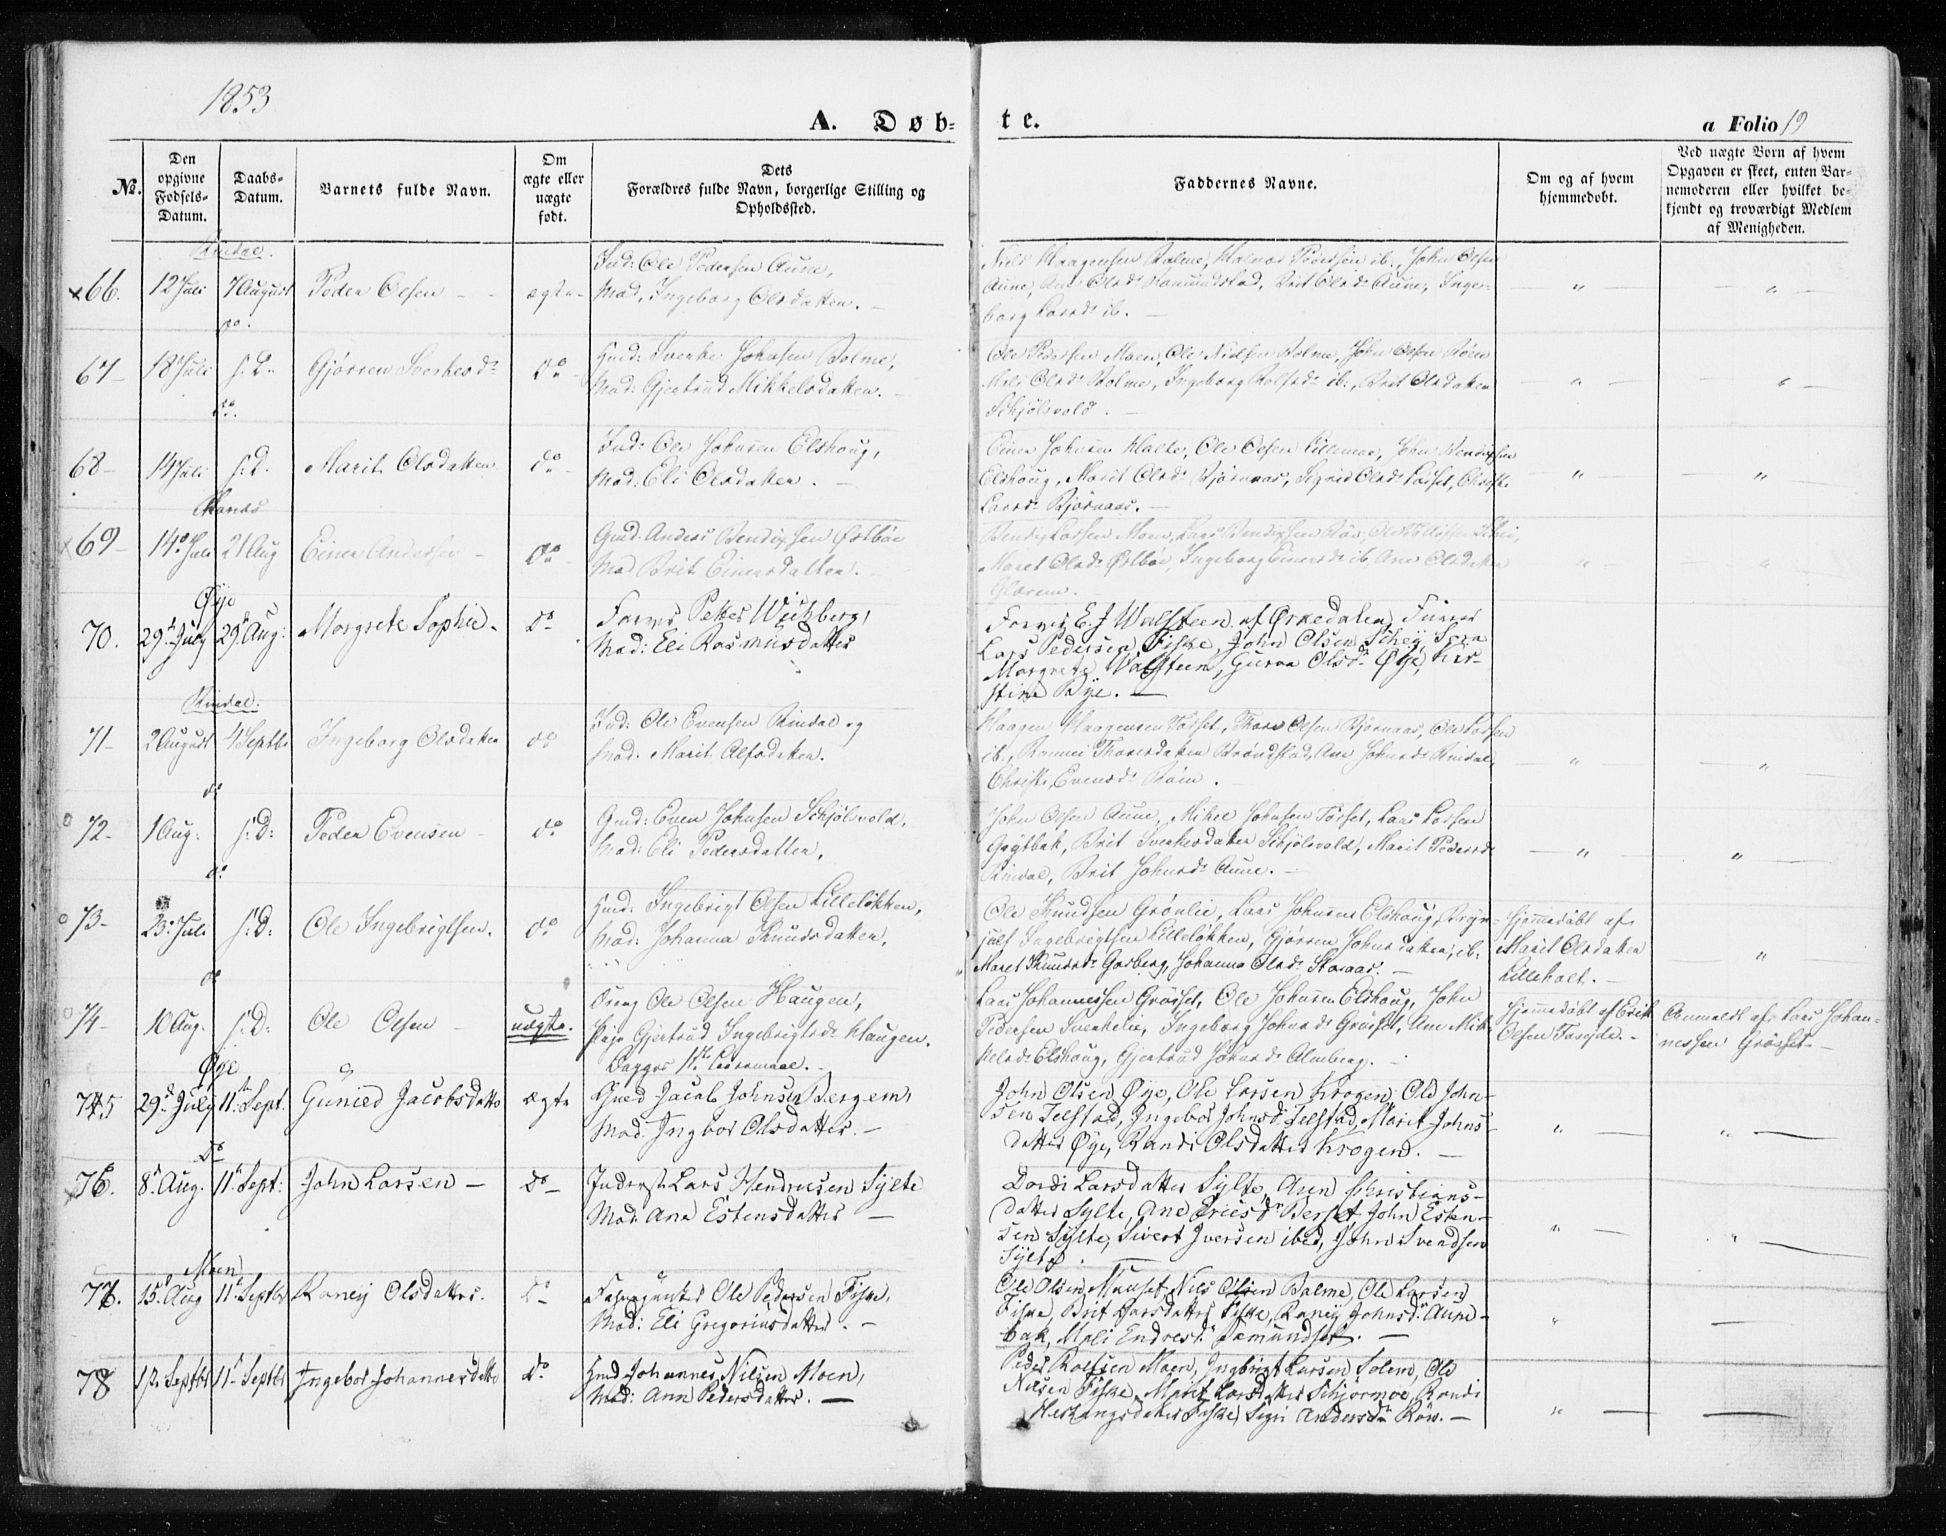 1853
A. Døb-
te.
a Folio 19
No.
Den opgivne Fødsels-Datum.
Daabs-Datum.
Barnets fulde Navn.
Om ægte eller uægte født.
Dets Forældres fulde Navn, borgerlige Stilling og Opholdssted.
Faddernes Navne.
Om og af hvem hjemmedøbt.
Ved uægte Børn af hvem Opgaven er skeet, enten Barnemoderen eller hvilket bekjendt og troværdigt Medlem af Menigheden.
Rindal.
66. 12 Juli 7 August Peder Olsen ægte Ind: Ole Pedersen Aune,
Mod, Ingeborg Olsdatter.
Nils Haagensen Bolme, Halvor Pedersen ib., John Olsen
Aune, Ane Olsd. Romundstad, Brit Olsd. Aune, Inge-
borg Larsd. ib.
do.
67 18 Juli s. D. Gjørren Sverkesd. Do Gmd: Sverke Johnsen Bolme,
Mod: Gjertrud Mikkelsdatter.
Ole Pedersen Moen, Ole Nielsen Bolme, John Olsen Røen
Mali Olsd. Bolme, Ingeborg Rolfsd. ib., Brit Olsdatter
Schjølsvold.
do.
68 14 Juli s. D. Marit Olsdatter do Ind: Ole Johnsen Elshoug,
Mod: Eli Olsdatter.
Einer Johnsen Halte, Ole Olsen Lillemoe, John Bendixsen
Elshoug, Marit Olsd. Bjørnaas, Sigrid Olsd. Torset, Christi
Larsd. Bjørnaas.
Hanæs
69 14 Juli 21 Aug Einer Andersen do Gmd: Anders Bendixsen Østbøe
Mod Brit Einersdatter.
Bendix Larsen Moen, Lars Bendixsen
Maret Olsd. Østbøe, Ingeborg Einersd. ib, Ane Olsdatter
Glærem.
Øye
70. 29 July 29 Aug: Margrete Sophie Do Farver Petter Wichberg,
Mod: Eli Rasmusdatter
Farver E. J Walsteen af Ørkedalen, Furer
Lars Pedersen Fiske, John Olsen Schey, Sara
Margrete Walsteen, Gurva Olsd. Øye, Kir-
stine Bye.
Rindal.
71 2 August 4 Septbr Ingeborg Olsdatter do Ind: Ole Evensen Rindal og
Mod: Marit Olsdatter.
Haagen Haagensen Torset, Thore Olsen Bjørnaas, Ole Larsen
ib., Rannei Thoresdatter Brøndstad, Ane Johnsd. Rindal,
Christi Evensd. Røen.
do
72 1 Aug: s: D: Peder Evensen do Gmd: Even Johnsen Schjølsvold,
Mod: Eli Pedersdatter,
John Olsen Aune, Mikel Johnsen Torset, Lars Larsen
Gaztbak, Brit Sverkesdatter Schjølsvold, Marit Pedersd.
Rindal, Brit Johnsd. Aune.
do
73 23: Juli s: D: Ole Ingebrigtsen. do Gmd: Ingebrigt Olsen Lilleløkken,
Mod: Johanna Knudsdatter,
Ole Knudsen Grønlie, Lars Johnsen Elshoug, Bryn-
julf Ingebrigtsen Lilleløkken, Gjørren Johnsdatter, ib.
Maret Knudsd. Garberg, Johanna Olsd. Storaas.
Hjemmedøbt af
Marit Olsdatter
Lilleholt.
do
74 10 Aug. s: D: Ole Olsen uægte. Dreng Ole Olsen Haugen,
Pige Gjertrud Ingebrigtsd. Haugen.
Begges 1ste Leiermaal.
Lars Johannessen Grøset, Ole Johnsen Elshoug, John
Pedersen Sverkelie, Ingeborg Johnsd. Grøset, Ane Mik-
kelsd. Elshoug, Gjertrud Johnsd. Almberg.
Hjemmedøbt af Erik
Olsen
Anmeldt af: Lars Johan-
nessen Grøset
Øye
75 29 July 11 Sept: Gunied Jacobsdatter ægte Gmd Jacob Johnsen Bergem,
Mod: Ingbor Olsdatter.
John Olsen Øye, Ole Larsen Krogen, Ole John-
sen Telstad, Ingebor Johnsd. Telstad, Marit Johns-
datter Øye, Randi Olsdatter Krogen.
do
76. 8 Aug. 11 Sept: John Larsen Do Inderst Lars Hendricsen Sylte
Mod: Ane Estensdatter
Dordi Larsdatter Sylte, Aren Christians-
datter Sylte, Ane Ericsd. Berset, John Esten-
sen Sylte, Sivert Iversen ibid, John Svendsen
Sylte.
Moen
77. 15 Aug 11 Septbr Raney Olsdatter. Do Ole Pedersen Fiske,
Mod: Eli Gregoriusdatter.
Ole Olsen Mauset, Nils Olsen Bolme, Ole Larsen
Fiske, Brit Larsdatter Fiske, Raney Johnsd. Aune-
bak, Mali Endresd. Romundset.
78 1 Septbr 11 Septbr Ingebor Johannesdatter Do Gmd Johannes Nilsen Moen,
Mod: Ann Pedersdatter.
Peder Rolfsen Moen, Ingbrigt Larsen Solem, Ole
Nilsen Fiske, Marit Larsdatter Schjørmoe, Randi
Fiske, Sigri Andersd. Røen.